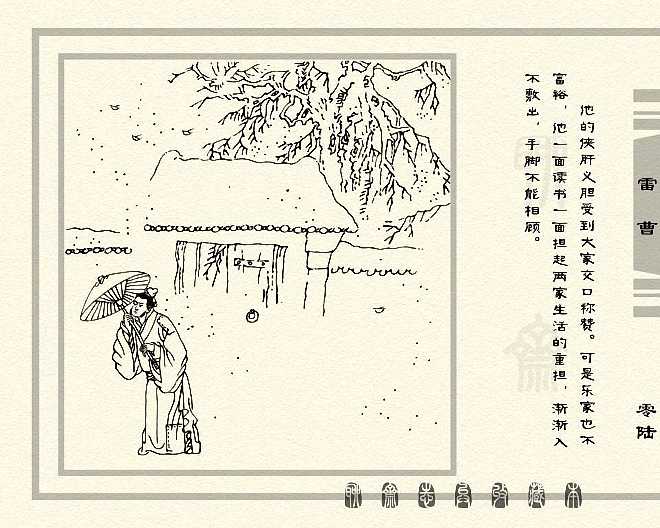 他的侠肝义胆受到大家交口称赞。可是乐家也不
富裕，他一面读书一面担起两家生活的重担，渐渐入
不敷出，手脚不能相顾。
雷曹
零陆